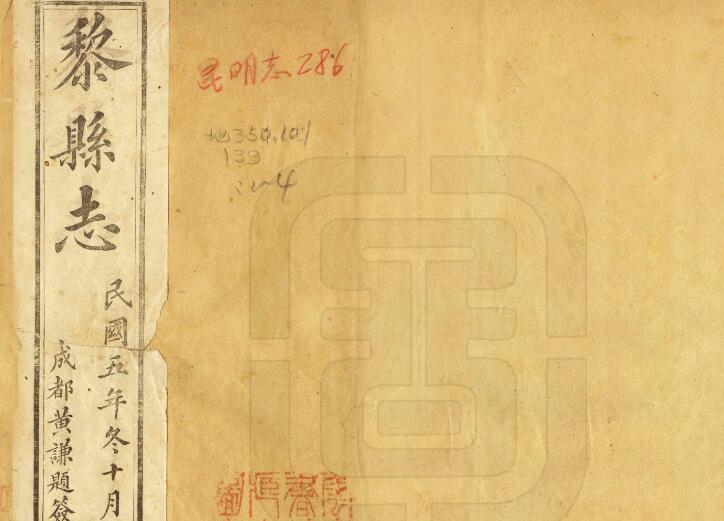 黎縣志
民國五年冬十月
成都黄謙題簽
民明志286
地350.101
139
:1~4